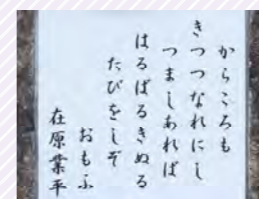 からころも
きつつなれにし
つましあれば
はるばるきぬる
たびをしぞ
おもふ
在原業平